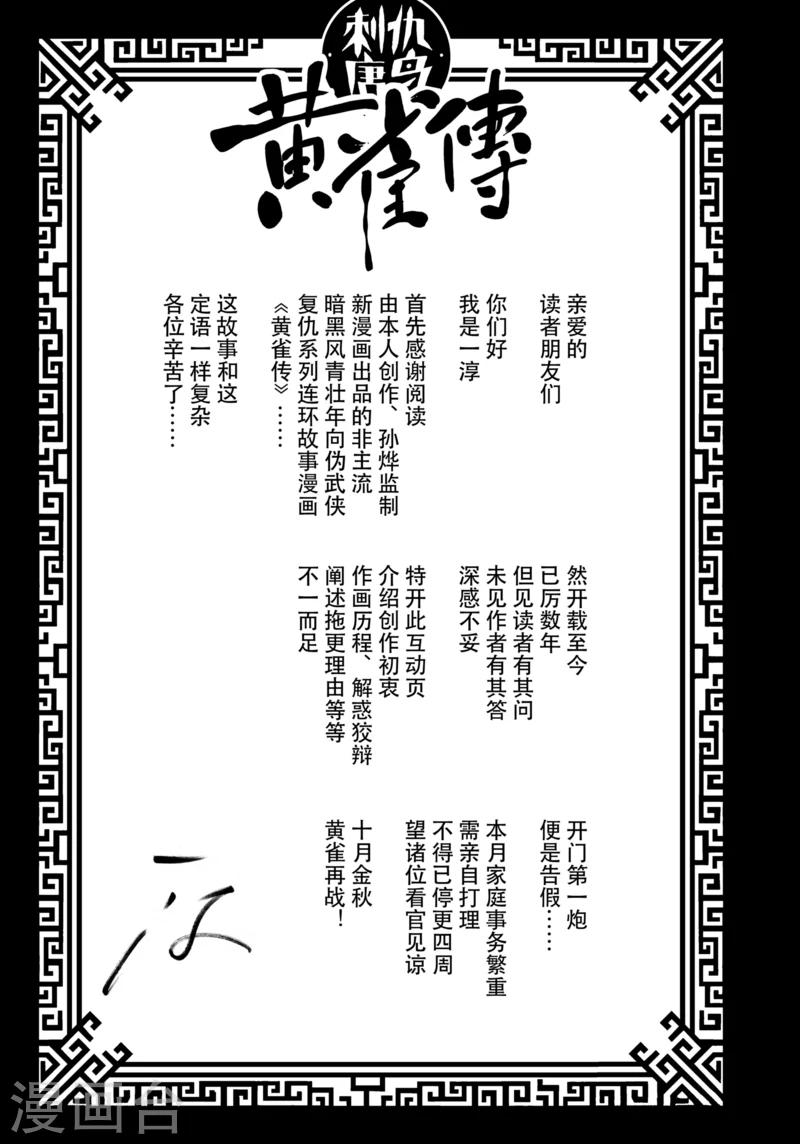 刺仇
庫鸟
黄雀傳
亲爱的
读者朋友们
你们好
我是一淳
首先感谢阅读
由本人创作、孙烨监制
新漫画出品的非主流
暗黑风青壮年向伪武侠
复仇系列连环故事漫画
《黄雀传》……
这故事和这
定语一样复杂
各位辛苦了……
然开载至今
已厉数年
但见读者有其问
未见作者有其答
深感不妥
特开此互动页
介绍创作初衷
作画历程、解惑狡辩
阐述拖更理由等等
不一而足
开门第一炮
便是告假……
本月家庭事务繁重
需亲自打理
不得已停更四周
望诸位看官见谅
十月金秋
黄雀再战！
漫画台